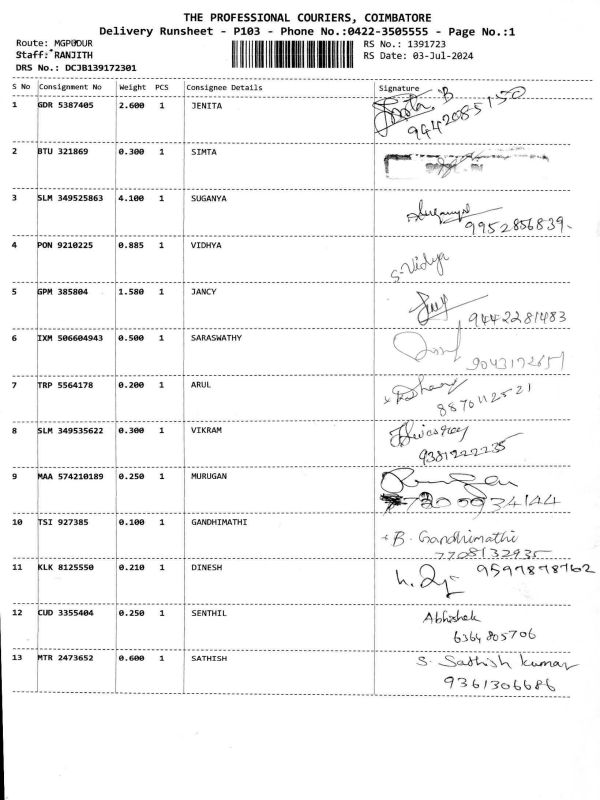 THE PROFESSIONAL COURIERS, COIMBATORE
Delivery Runsheet - P103 - Phone No.:0422-3505555 - Page No.:1
Route: MGPUDUR
Staff: RANJITH
DRS No.: DCJB139172301
RS No.: 1391723
RS Date: 03-Jul-2024
S No Consignment No Weight PCS Consignee Details Signature
1 GDR 5387405 2.600 1 JENITA
9442085150
2 BTU 321869 0.300 1 SIMTA
3 SLM 349525863 4.100 1 SUGANYA
9952856839
4 PON 9210225 0.885 1 VIDHYA S. Vidya
5 GPM 385804 1.580 1 JANCY
9442281483
6 IXM 506604943 0.500 1 SARASWATHY
9043172651
7 TRP 5564178 0.200 1 ARUL
8870112521
8 SLM 349535622 0.300 1 VIKRAM
9381222235
9 MAA 574210189 0.250 1 MURUGAN
10 TSI 927385 0.100 1 GANDHIMATHI B. Gandhimathi
7708132935
11 KLK 8125550 0.210 1 DINESH 9597878762
12 CUD 3355404 0.250 1 SENTHIL Abhishek
6364805706
13 MTR 2473652 0.600 1 SATHISH S. Sathish kumar
9361306686